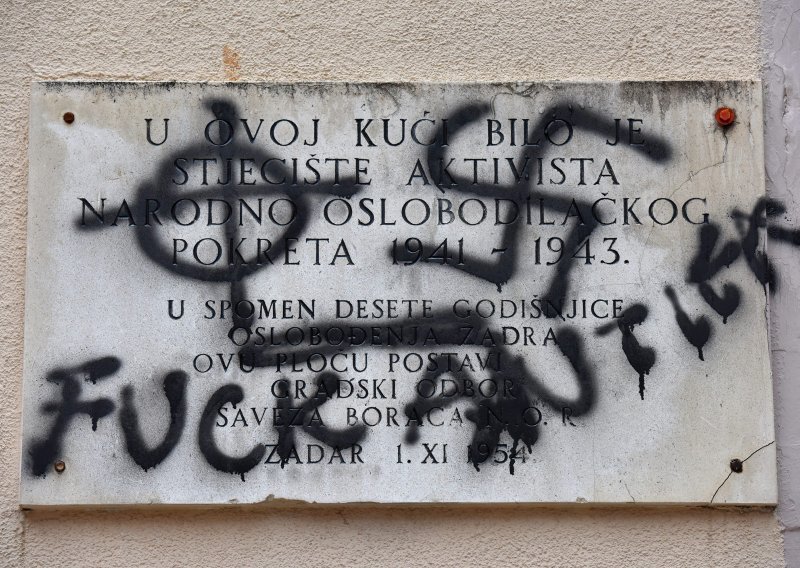 U OVOJ KUĆI BILO JE
STJECIŠTE AKTIVISTA
NARODNO OSLOBODILAČKOG
POKRETA 1941 - 1943.
U SPOMEN DESETE GODIŠNJICE
OSLOBOĐENJA ZADRA
OVU PLOČU POSTAVI
GRADSKI ODBOR
SAVEZA BORACA N.O.R
ZADAR 1. XI 1954
FUCK ANTIFE